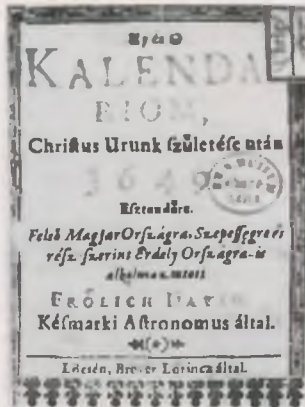 Uj és O
KALENDA
RIOM,
Chriſtus Urunk ſzületéſe után
1649
Eſztendőre.
Felső MagyarOrſzágra, Szepeſſegre és
réſz ſzerint Erdely Orſzagra-is
alkalmaztatott
FRÖLICH DAVID
Késmarki Aſtronomus által.
Lőcsén, Brever Lorincz által.